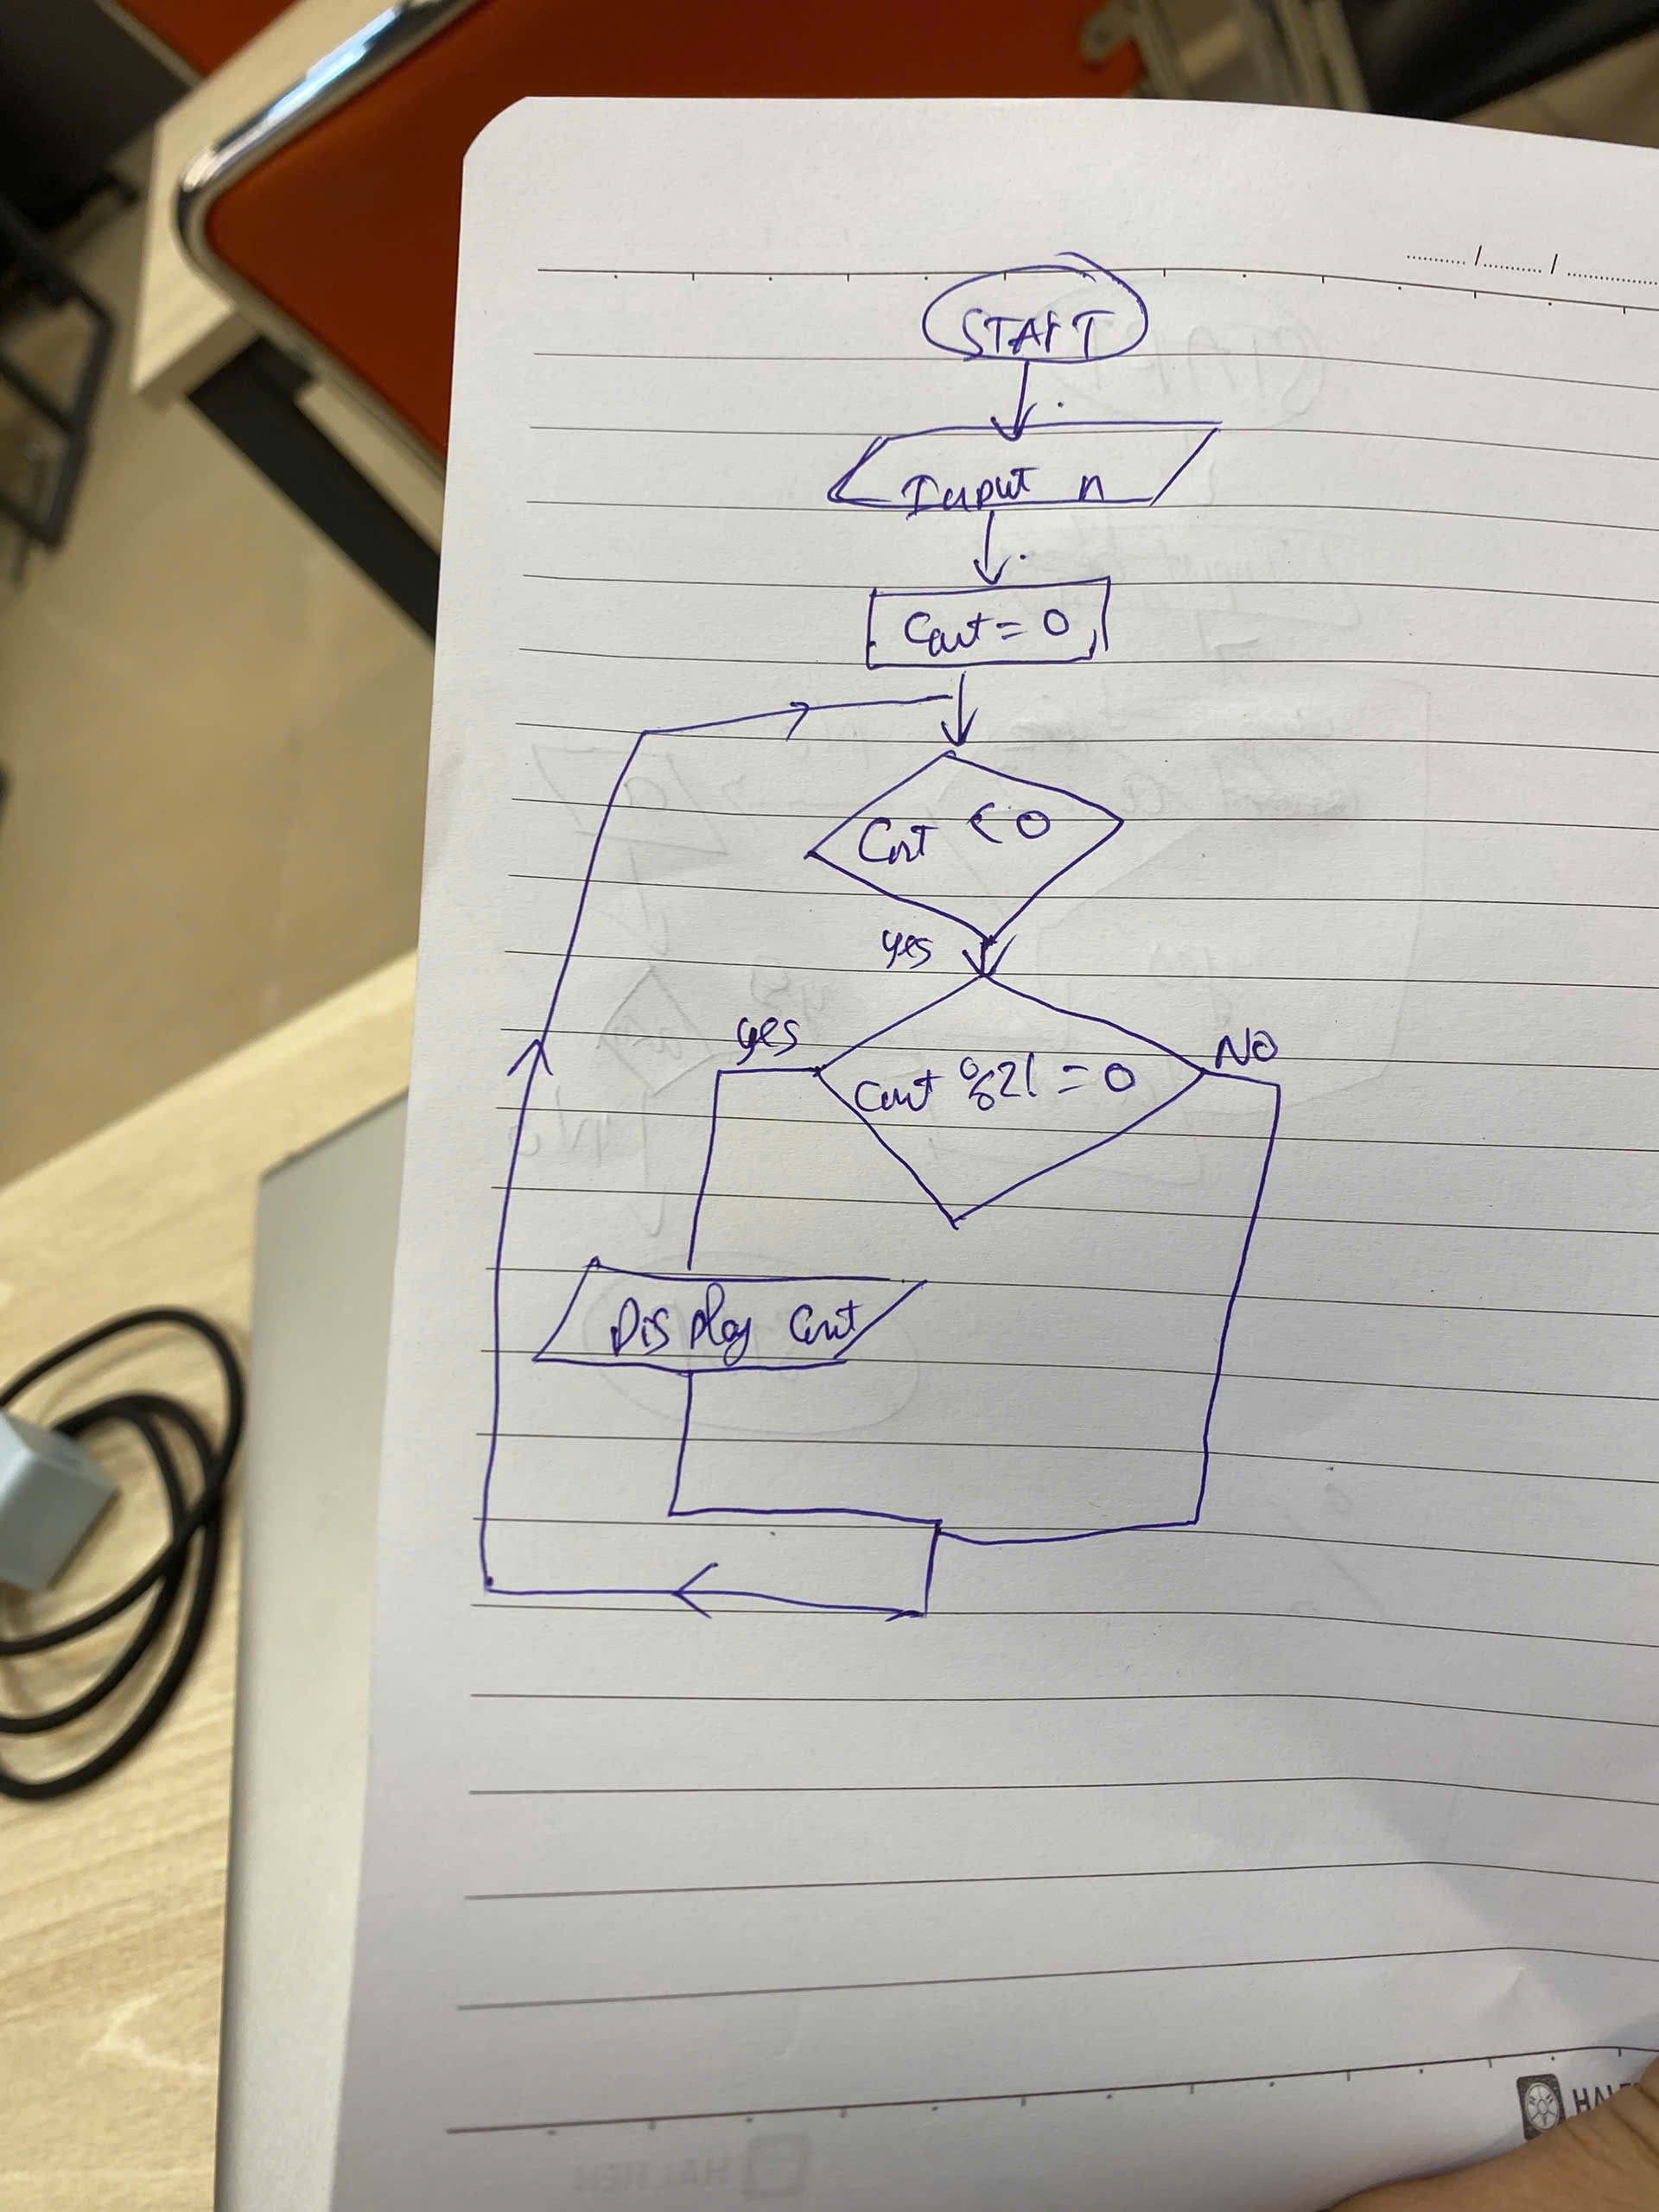 START
Input n
Cnt = 0
Cnt < 0
yes
yes
NO
Cnt %2! = 0
Display Cnt